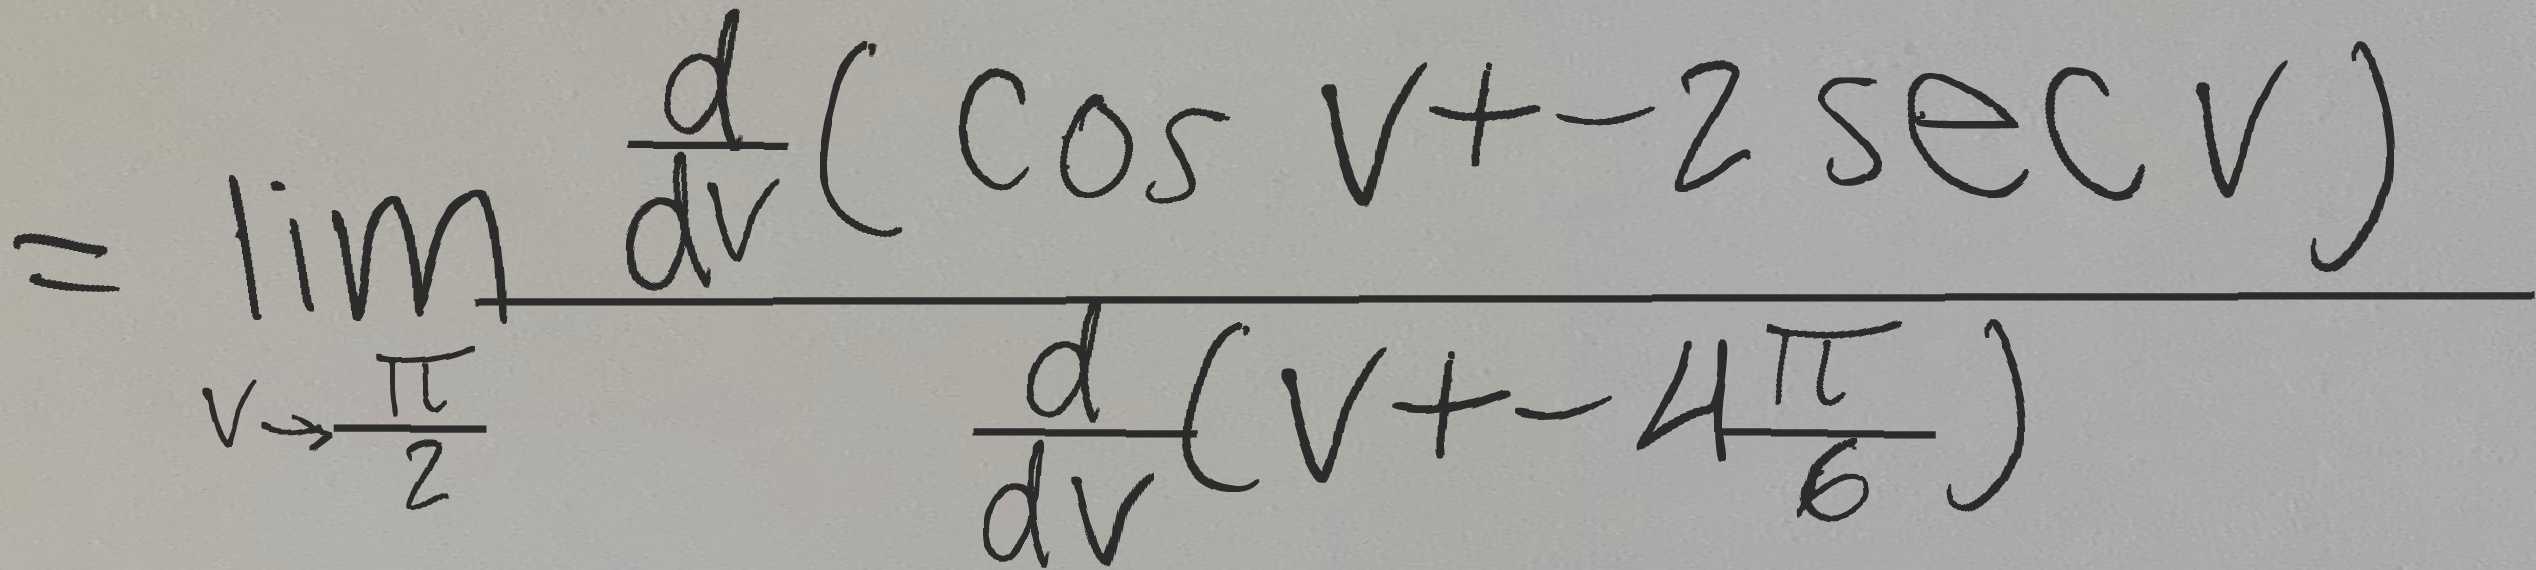 = \lim_{v \to \frac{\pi}{2}} \frac{\frac{d}{dv}(\cos v + -2 \sec v)}{\frac{d}{dv}(v + -4\frac{\pi}{6})}